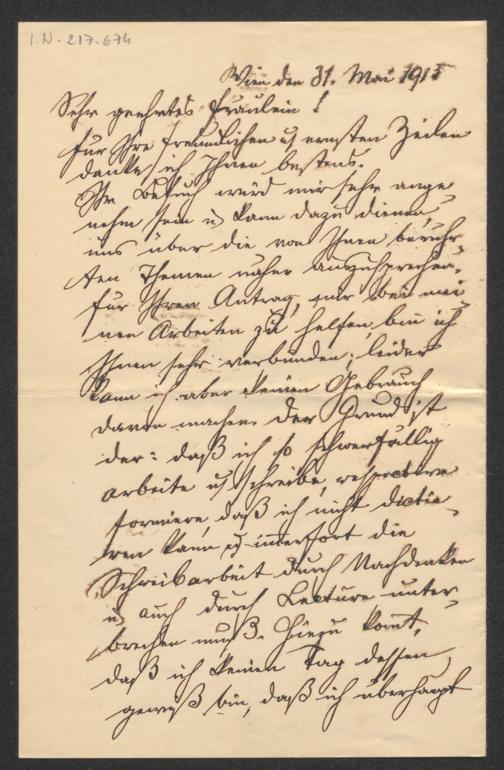 I.N. 217.674
Wien den 31. Mai 1915
Sehr geehrtes Fräulein!
Für Ihre freundlichen u ernsten Zeilen
danke ich Ihnen bestens.
Ihr Besuch wird mir sehr ange-
nehm sein u kann dazu dienen,
uns über die von Ihnen berühr-
ten Themen näher auszusprechen.
Für Ihren Antrag, mir bei mei-
nen Arbeiten zu helfen, bin ich
Ihnen sehr verbunden; leider
kann ich aber keinen Gebrauch
davon machen. Der Grund ist
der: daß ich so schwerfällig
arbeite u schreibe, respective
formiere, daß ich nicht dictie-
ren kann, u immerfort die
Schreibarbeit durch Nachdenken
u auch durch Lectüre unter-
brechen muß. Hiezu kom̅t,
daß ich keinen Tag dessen
gewiß bin, daß ich überhaupt